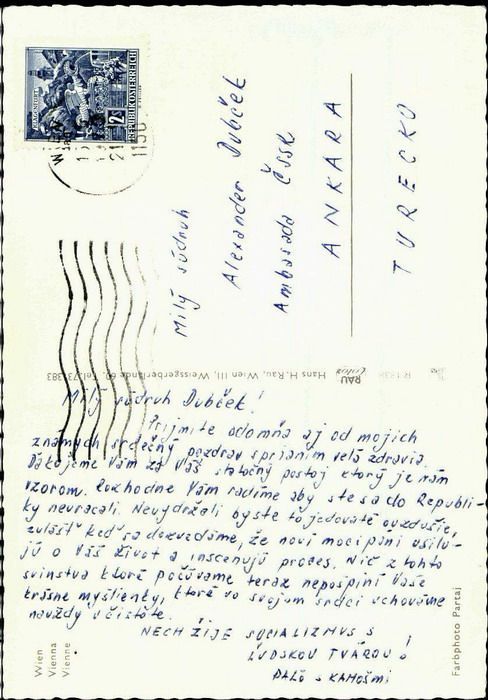 REPUBLIK ÖSTERREICH
Milý súdruh
Alexander Dubček
Ambasáda ČSSR
ANKARA
TURECKO
RAU
Hans H. Rau, Wien III, Weissgerberlände 60, Tel. 73-383
Milý súdruh Dubček!
Prijmite odomňa aj od mojich
známych srdečný pozdrav sprianím vela zdravia.
Ďakujeme Vám za Váš statočný postoj ktorý je nám
vzorom. Rozhodne Vám radíme aby ste sa do Republi-
ky nevracali. Nevydržali by ste to jedovaté ovzdušie,
zvlášť keď sa dozvedáme, že noví mocipáni usilu-
jú o Váš život a inscenujú proces. Nič z tohto
svinstva ktoré počúvame teraz nepošpiní Vaše
krásne myšlienky, ktoré vo svojom srdci uchováme
navždy v čistote.
NECH ŽIJE SOCIALIZMUS S
ĽUDSKOU TVÁROU!
PALO s KAMOŠMI
Wien
Vienna
Vienne
Farbphoto Partaj